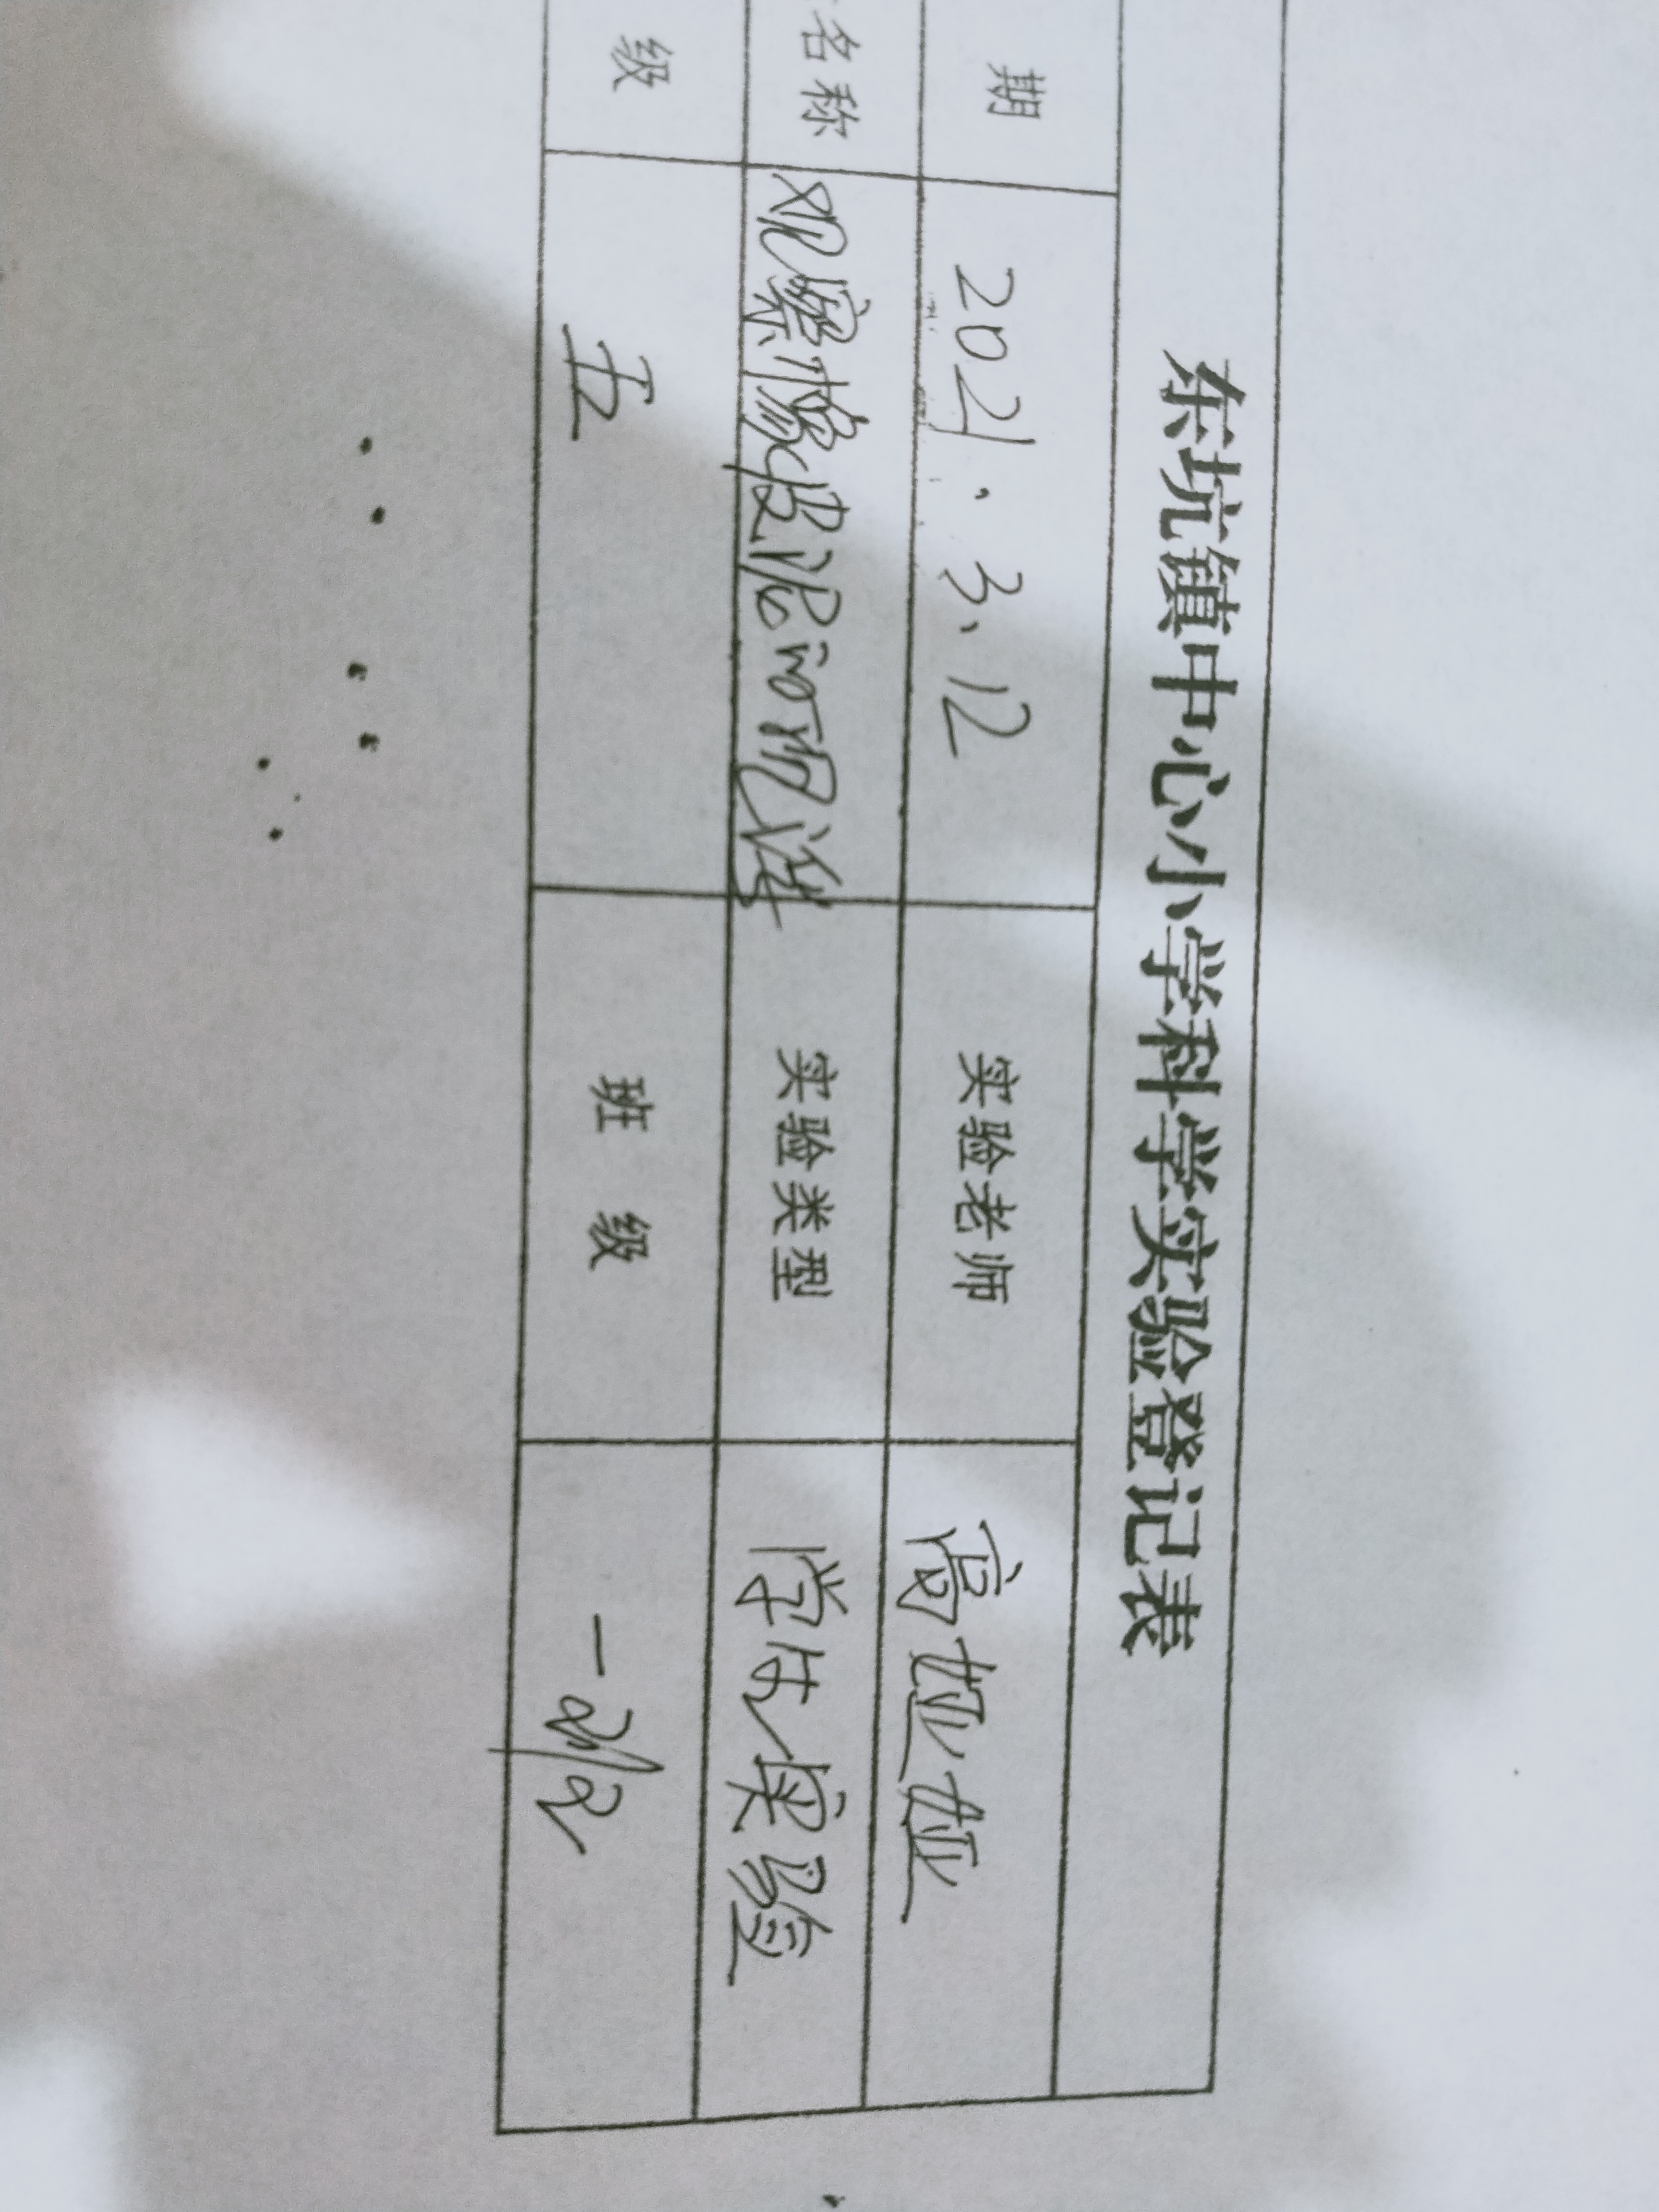 东坑镇中心小学科学实验登记表
期 2021.3.12 实验老师 高娅娅
名称 观察橡皮泥的沉浮 实验类型 学生实验
级 五 班 级